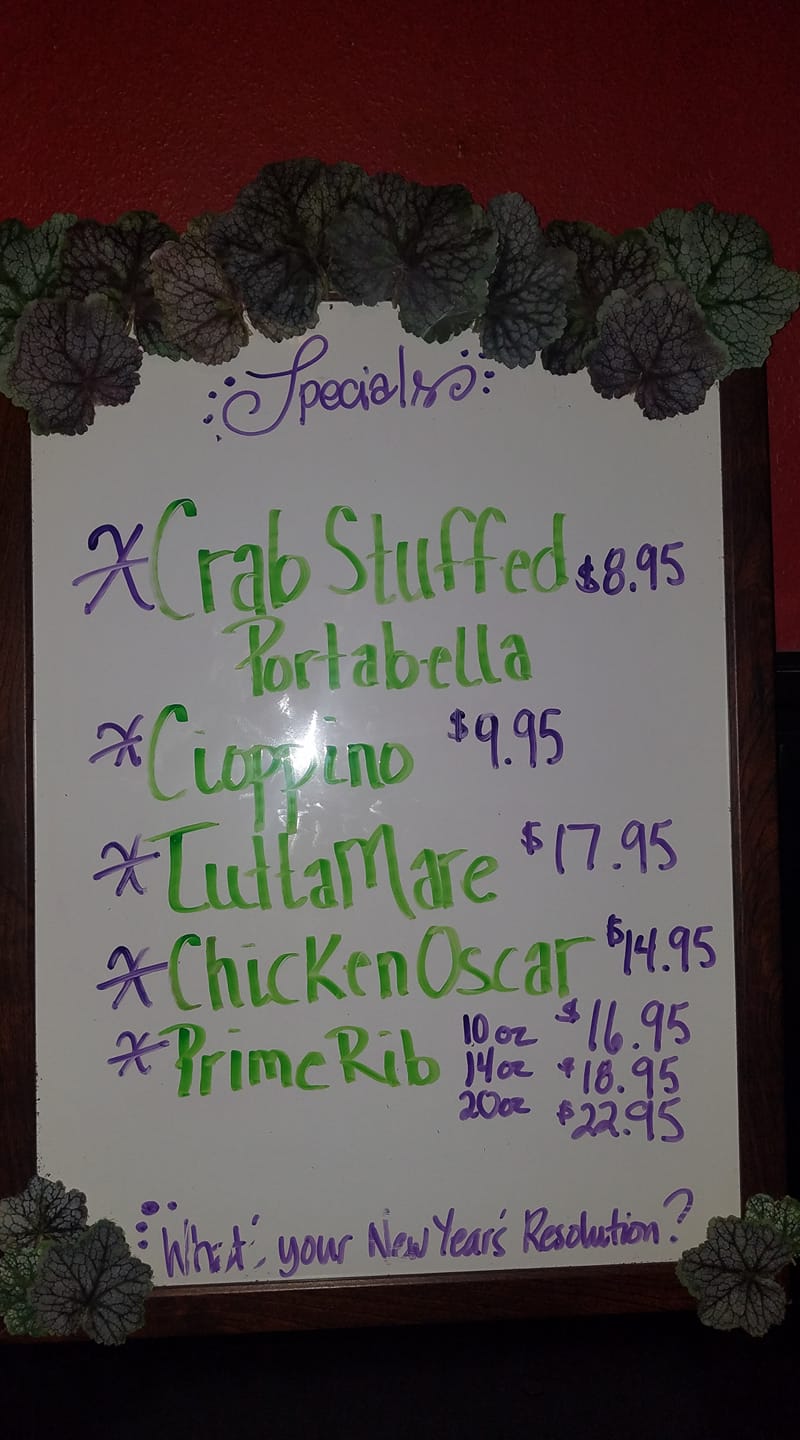 Specials
* Crab Stuffed $8.95
Portabella
* Cioppino $9.95
* TuttaMare $17.95
* Chicken Oscar $14.95
* Prime Rib 10 oz $16.95
14 oz $18.95
20 oz $22.95
What's your New Year's Resolution?